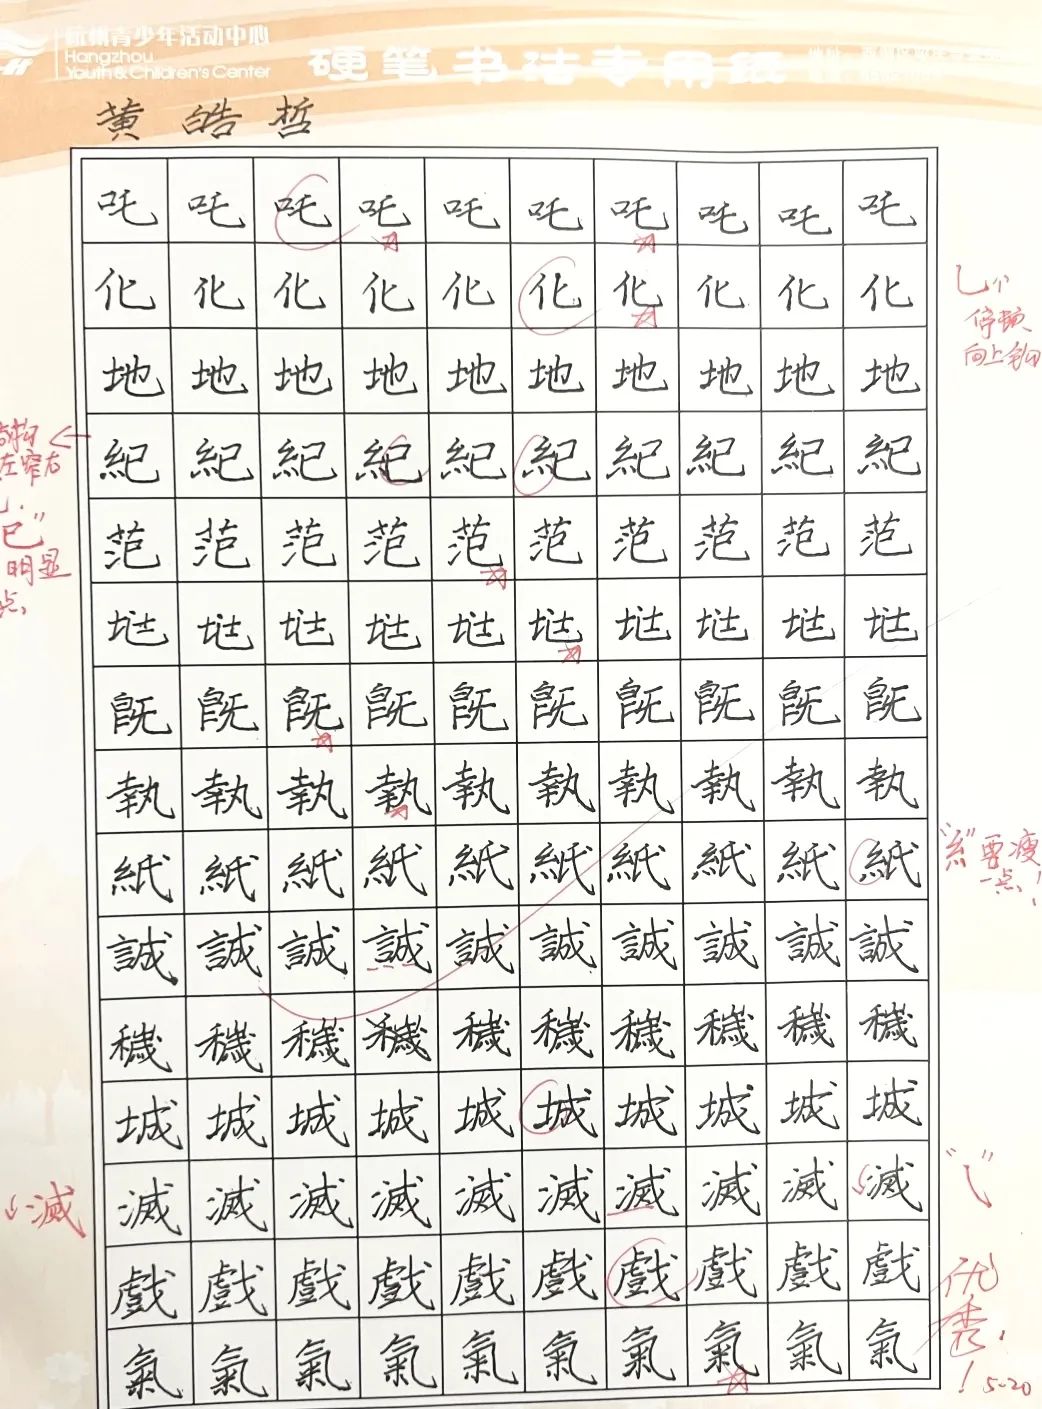 杭州青少年活动中心
Hangzhou
Youth & Children's Center
硬笔书法专用纸
黄皓哲
吒吒吒吒吒吒吒吒吒吒
化化化化化化化化化化
停顿
向上钩
地地地地地地地地地地
紀紀紀紀紀紀紀紀紀紀
左窄右
"巳"
明显
点、
范范范范范范范范范范
執執執執執執執執執執
紙紙紙紙紙紙紙紙紙紙
"糹"要瘦
一点!
誠誠誠誠誠誠誠誠誠誠
穢穢穢穢穢穢穢穢穢穢
城城城城城城城城城城
滅滅滅滅滅滅滅滅滅滅
滅
戲戲戲戲戲戲戲戲戲戲
氣氣氣氣氣氣氣氣氣氣
优秀!
5-20